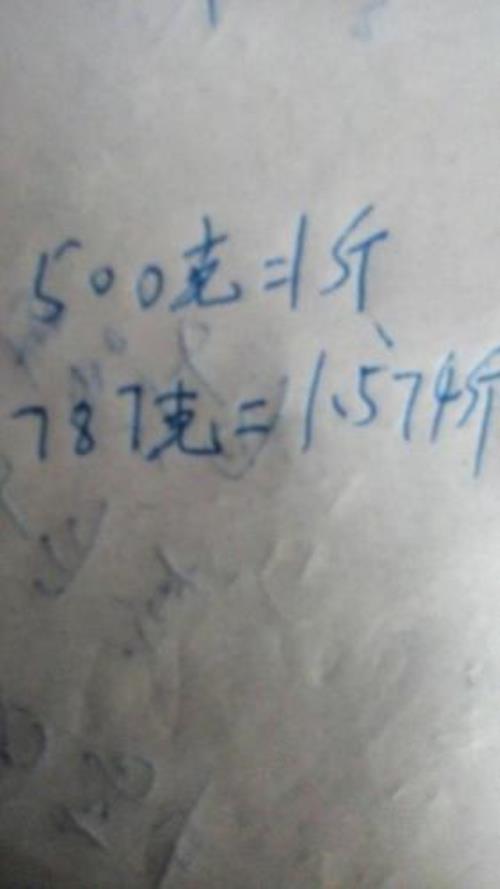 500克=1斤
787克=1.574斤